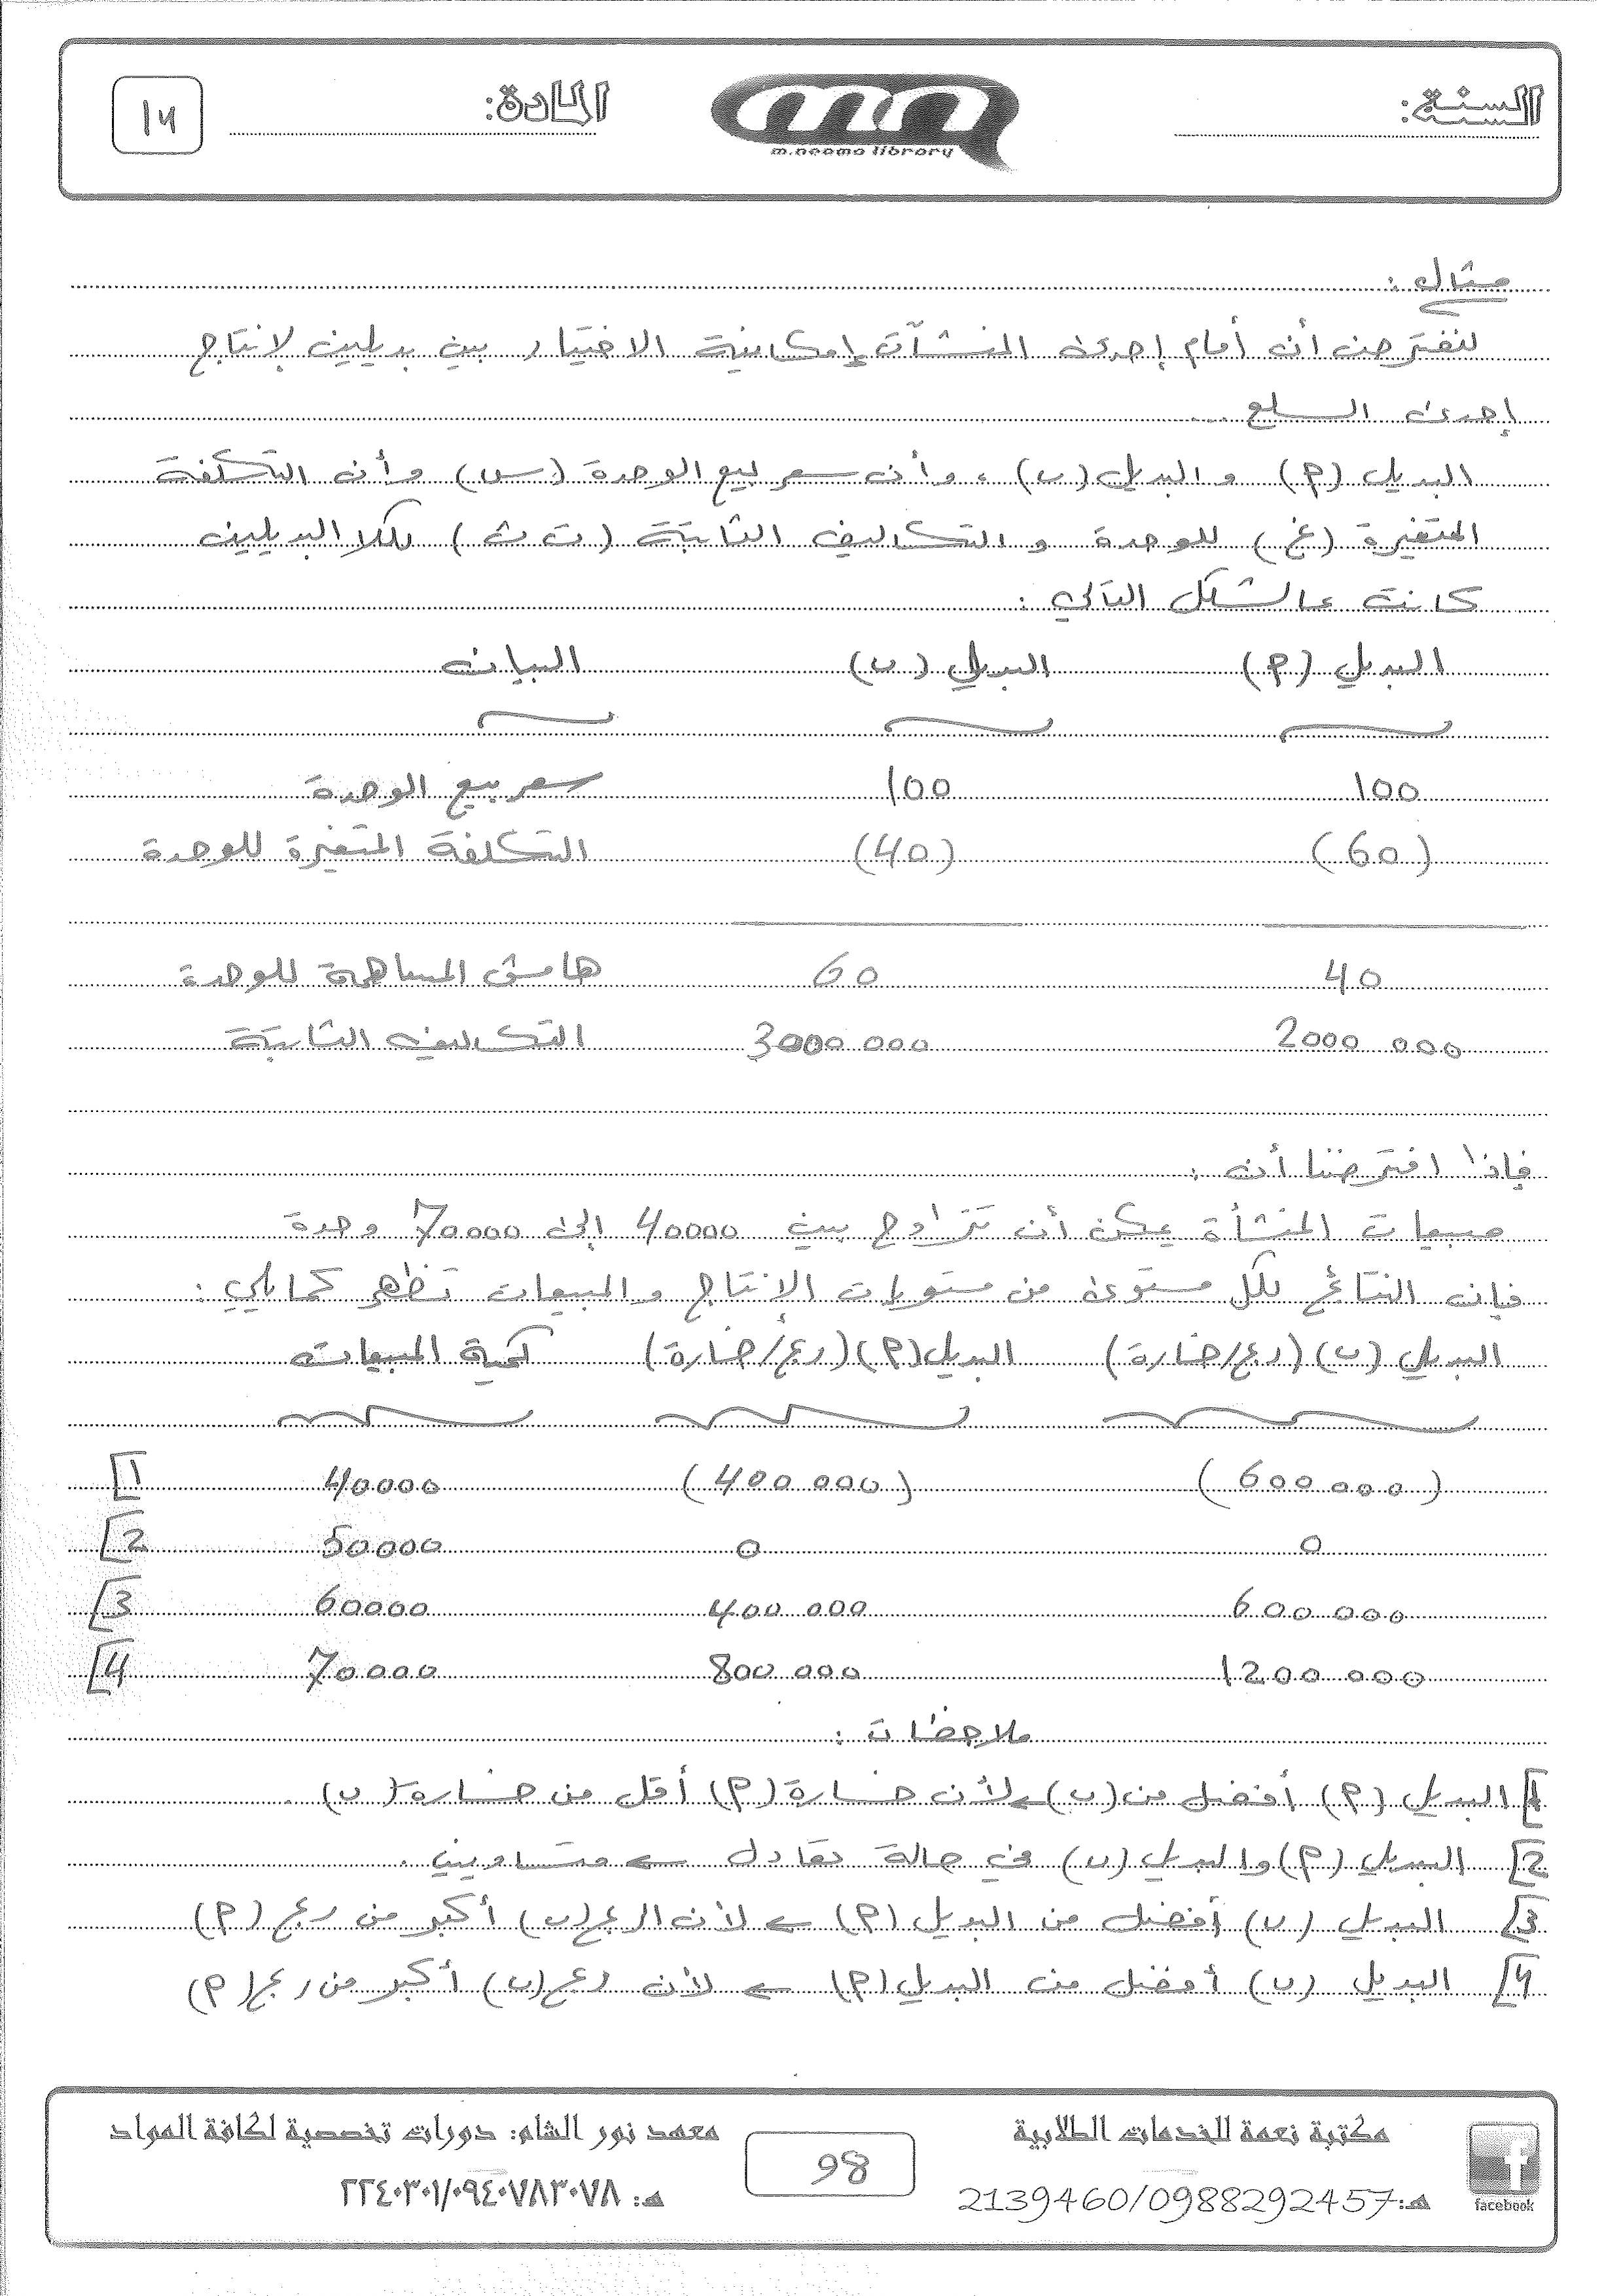 السنة:
m.neama library
المادة:
14
مثال:
لنفترض أن أمام إحدى المنشآت إمكانية الاختيار بين بديلين لإنتاج
إحدى السلع ...
البديل (م) و البديل (ب) ، وأن سعر بيع الوحدة (س) وأن التكلفة
المتغيرة (غ) للوحدة و التكاليف الثابتة (ت ث) لكلا البديلين
كانت عالشكل التالي :
البديل (م) البديل (ب) البيان
100 100 سعر بيع الوحدة
(60) (40) التكلفة المتغيرة للوحدة
40 60 هامش المساهمة للوحدة
2000 000 3000 000 التكاليف الثابتة
فإذا افترضنا أن :
مبيعات المنشأة يمكن أن تتراوح بين 40000 إلى 70000 وحدة
فإن النتائج لكل مستوى من مستويات الإنتاج والمبيعات تظهر كمايلي :
البديل (ب) (ربح/خسارة) البديل (م) (ربح/خسارة) كمية المبيعات
(600 000) (400 000) 40000 [1
0 0 50000 [2
600 000 400 000 60000 [3
1200 000 800 000 70000 [4
ملاحظات :
1] البديل (م) أفضل من (ب) ← لأن خسارة (م) أقل من خسارة (ب) .
2] البديل (م) والبديل (ب) في حالة تعادل ← متساويين .
3] البديل (ب) أفضل من البديل (م) ← لأن الربح (ب) أكبر من ربح (م)
4] البديل (ب) أفضل من البديل (م) ← لأن ربح (ب) أكبر من ربح (م)
facebook
مكتبة نعمة للخدمات الطلابية
هـ: 2139460/0988292457
98
معهد نور الشام: دورات تخصصية لكافة المواد
هـ: ٢٢٤٠٣٠١/٠٩٤٠٧٨٣٠٧٨